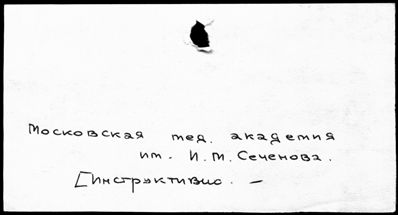 Московская мед. академия
им. И.М. Сеченова.
[Инструктивно. —